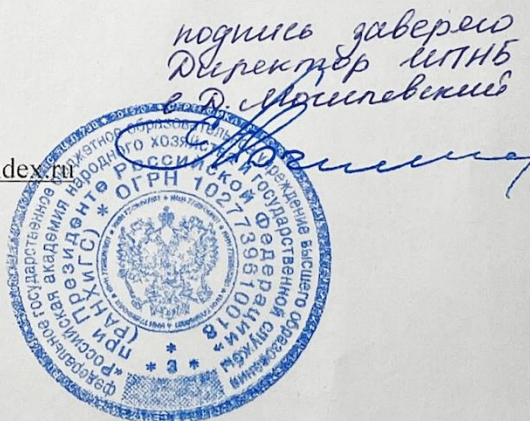 подпись заверяю
Директор ИПНБ
С.Д. Могилевский
dex.ru
федеральное государственное бюджетное образовательное учреждение высшего образования
«Российская академия народного хозяйства и государственной службы
при Президенте Российской Федерации»
(РАНХиГС) * ОГРН 1027739610018
* 3 *